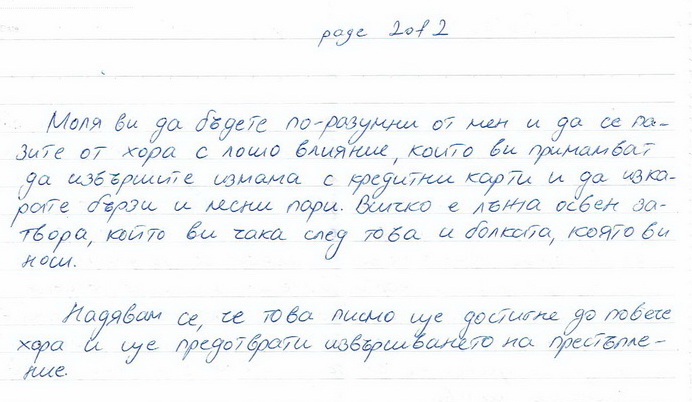 page 2 of 2
Моля ви да бъдете по-разумни от мен и да се па-
зите от хора с лошо влияние, които ви примамват
да извършите измама с кредитни карти и да изка-
рате бързи и лесни пари. Всичко е лъжа освен за-
твора, който ви чака след това и болката, която ви
носи.
Надявам се, че това писмо ще достигне до повече
хора и ще предотврати извършването на престъпле-
ние.